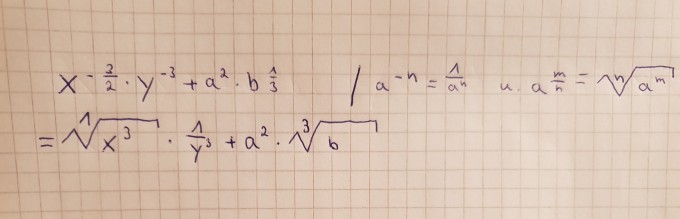 x^{-3/2} · y^{-3} + a^2 · b^{1/3} | a^{-n} = 1/a^n u. a^{m/n} = \sqrt[n]{a^m}
= \sqrt[1]{x^3} · 1/y^3 + a^2 · \sqrt[3]{b}